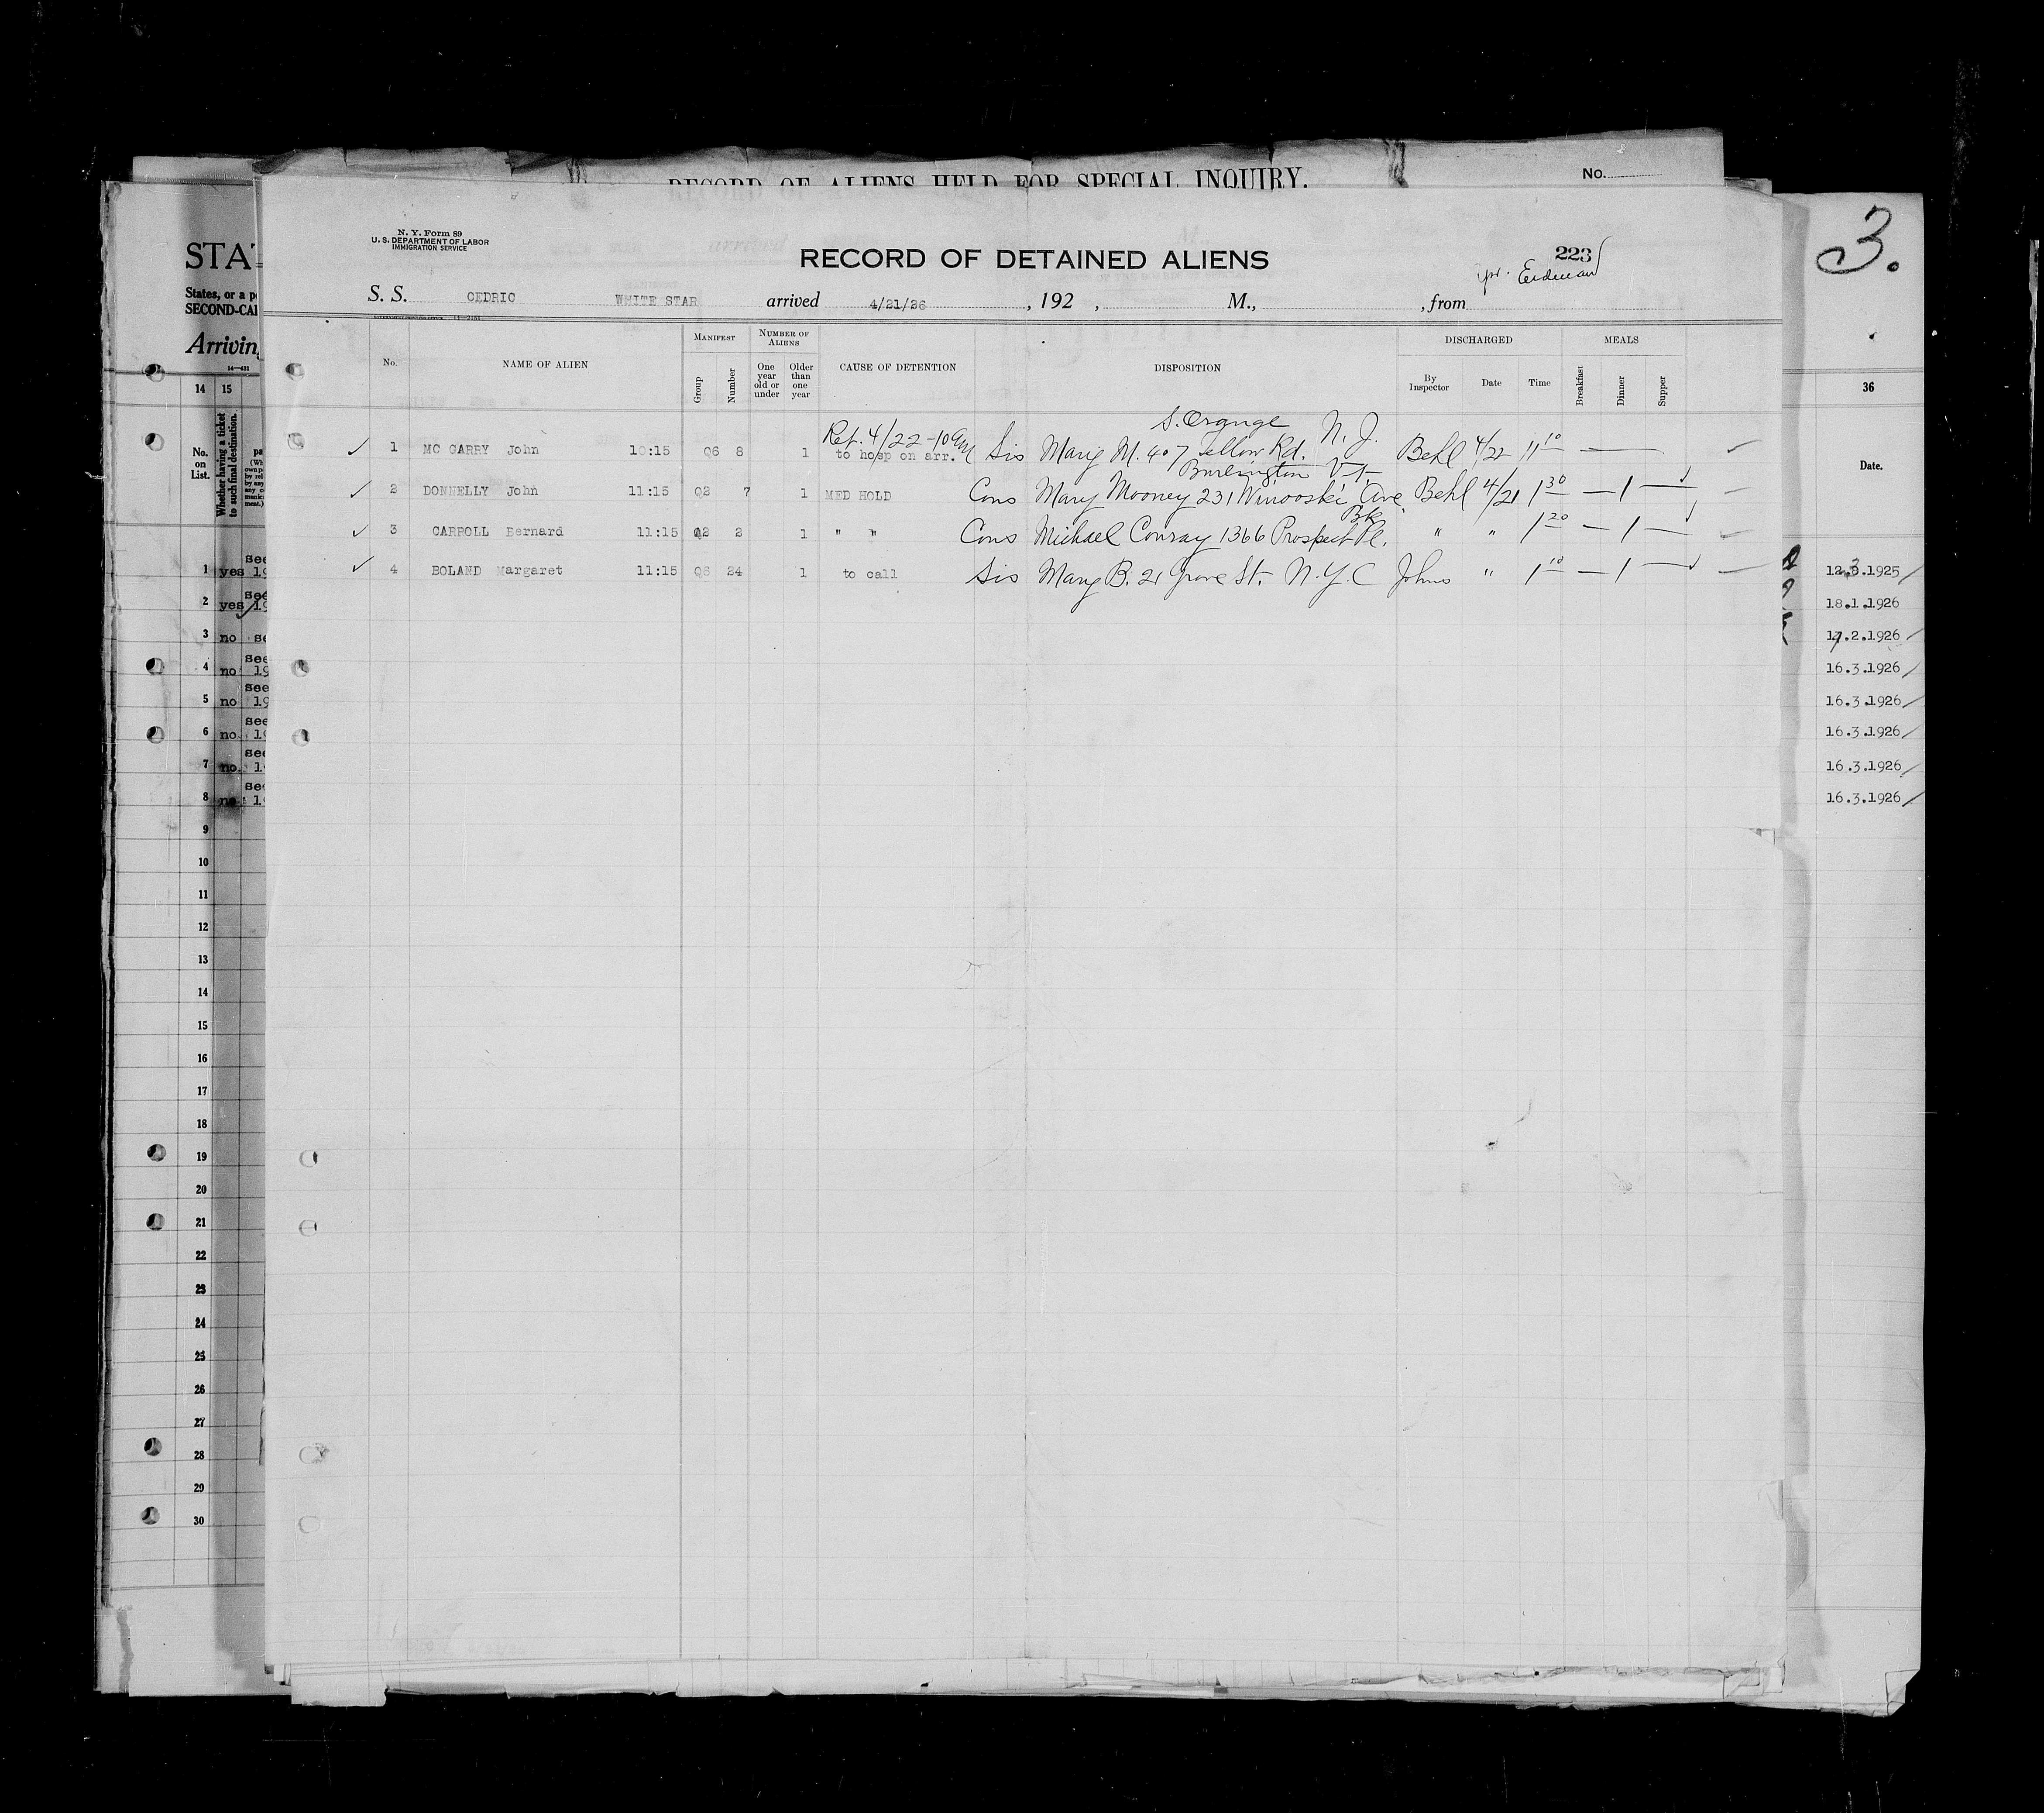 RECORD OF ALIENS HELD FOR SPECIAL INQUIRY.
No.
3.
N. Y. Form 89
U. S. DEPARTMENT OF LABOR
IMMIGRATION SERVICE
RECORD OF DETAINED ALIENS
223
S. S. CEDRIC WHITE STAR arrived 4/21/26, 192 , M., , from
No. NAME OF ALIEN MANIFEST Group Number NUMBER OF ALIENS One year old or under Older than one year CAUSE OF DETENTION DISPOSITION DISCHARGED By Inspector Date Time MEALS Breakfast Dinner Supper
S. Orange N. J.
Ret. 4/22-10 AM
1 MC GARRY John 10:15 Q6 8 1 to hosp on arr. Sis Mary M. 407 Rd. Behl 4/22 11 10 —
Burlington Vt
2 DONNELLY John 11:15 Q2 7 1 MED HOLD Cous Mary Mooney 231 Winooski Ave. Behl 4/21 1 30 — 1 —
Bk
3 CARROLL Bernard 11:15 Q2 2 1 " " Cous Michael Conray 1366 Prospect Pl. " " 1 20 — 1 —
4 BOLAND Margaret 11:15 Q6 24 1 to call Sis Mary B. 21 Grove St. N.Y.C Johns " 1 10 — 1 —
STAT
States, or a p
SECOND-CA
Arriving
14—431
14 15
No. on List.
Whether having a ticket to such final destination.
1 yes see 19
2 yes see 19
3 no se
4 no see 19
5 no see 19
6 no. see 19
7 no. see 19
8 no see 19
9
10
11
12
13
14
15
16
17
18
19
20
21
22
23
24
25
26
27
28
29
30
36
Date.
12.3.1925
18.1.1926
17.2.1926
16.3.1926
16.3.1926
16.3.1926
16.3.1926
16.3.1926